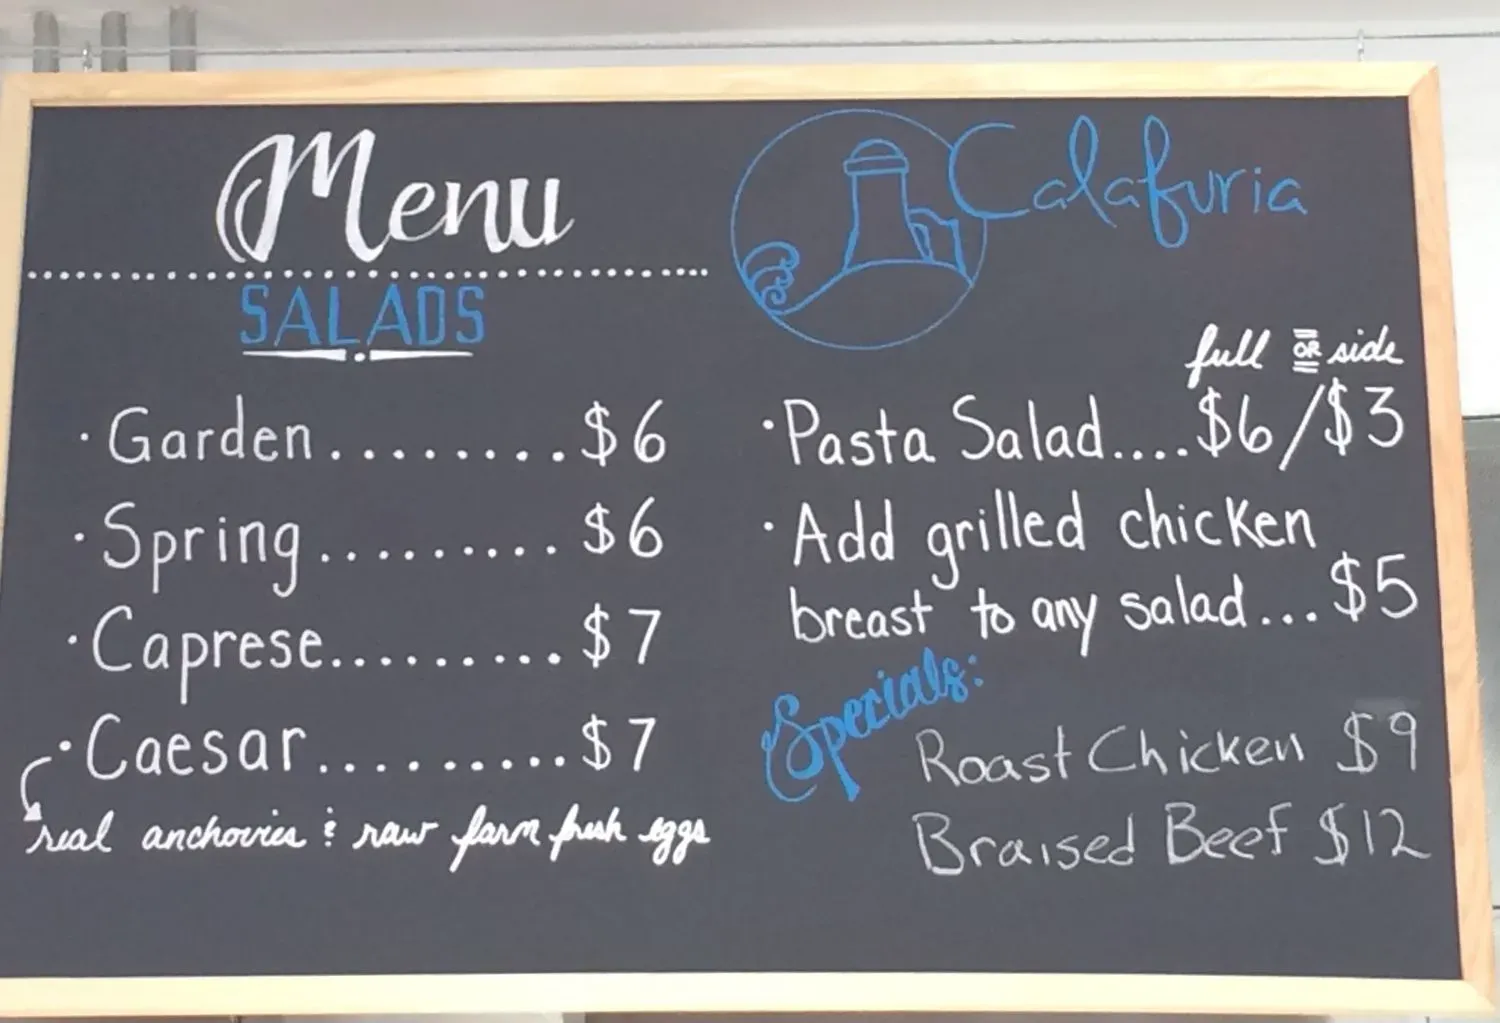 Menu
SALADS
· Garden.........$6
· Spring.......... $6
· Caprese.......... $7
· Caesar..........$7
real anchovies & raw farm fresh eggs
Calafuria
full OR side
· Pasta Salad....$6/$3
· Add grilled chicken
breast to any salad...$5
Specials:
Roast Chicken $9
Braised Beef $12